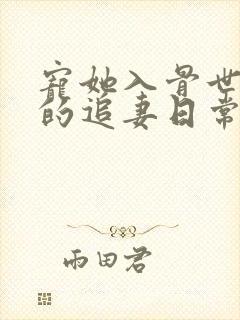 寵她入骨世
的追妻日常
雨田君